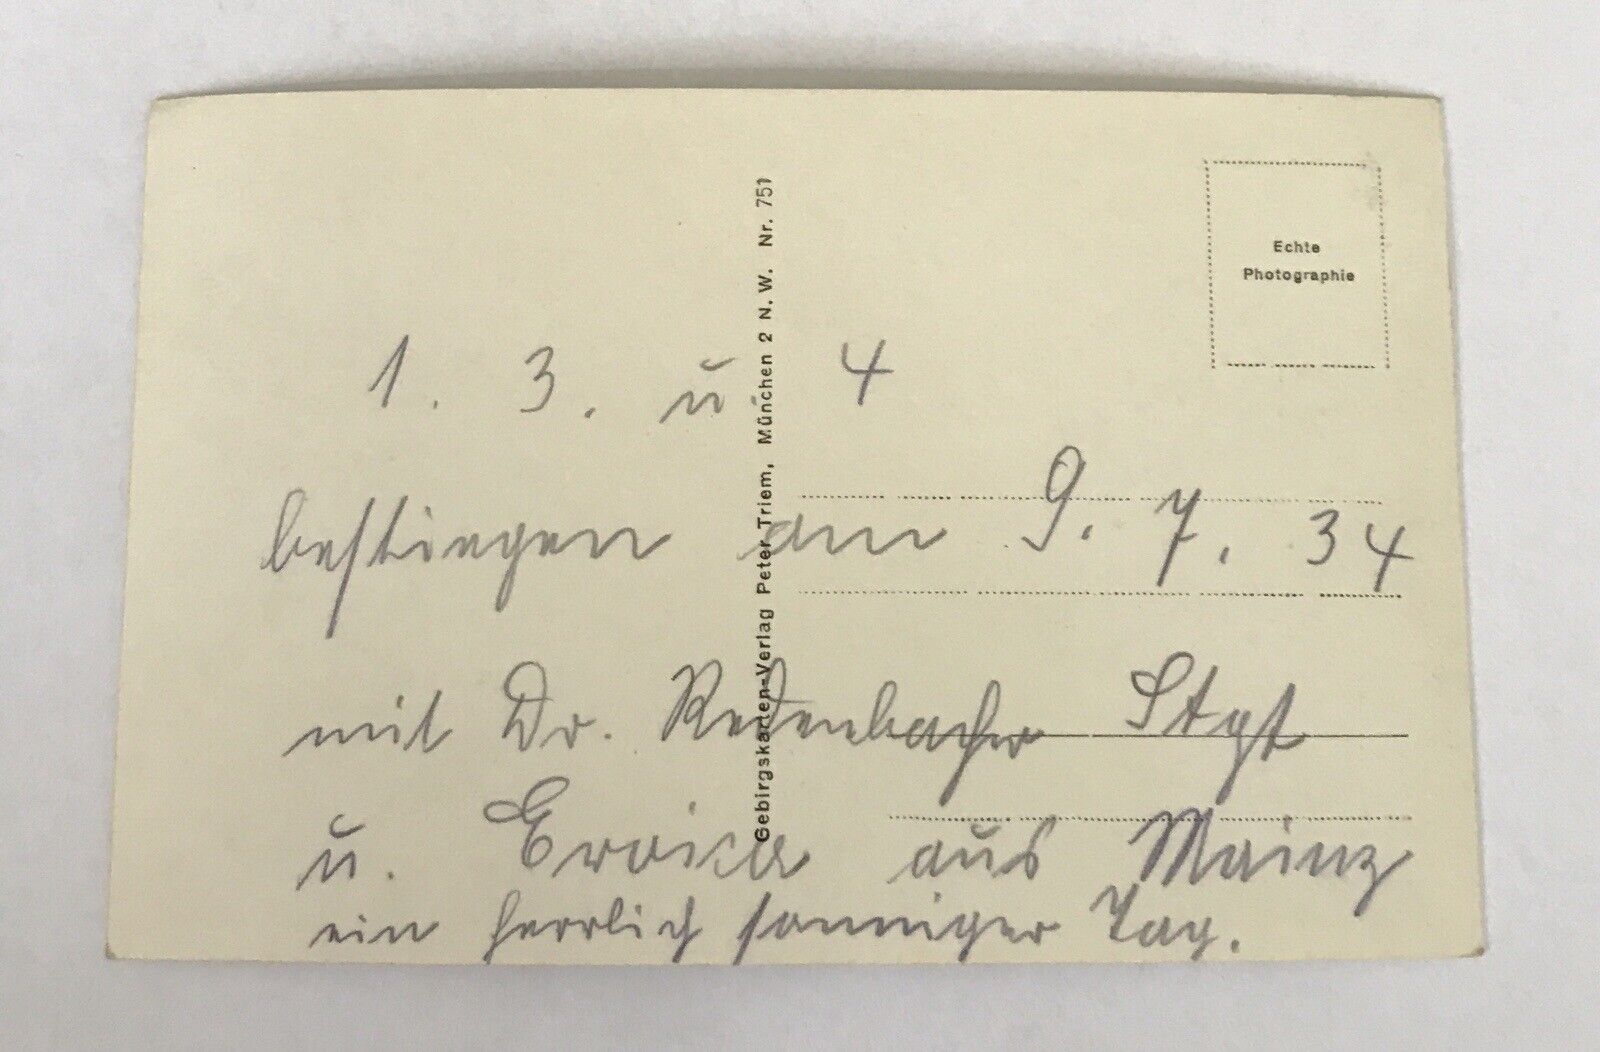 Gebirgskarten-Verlag Peter Triem, München 2 N. W. Nr. 751
Echte
Photographie
1. 3. u. 4
bestiegen am 9. 7. 34
mit Dr. Redenbacher Stgt
u. aus Mainz
ein herrlich sonniger Tag.